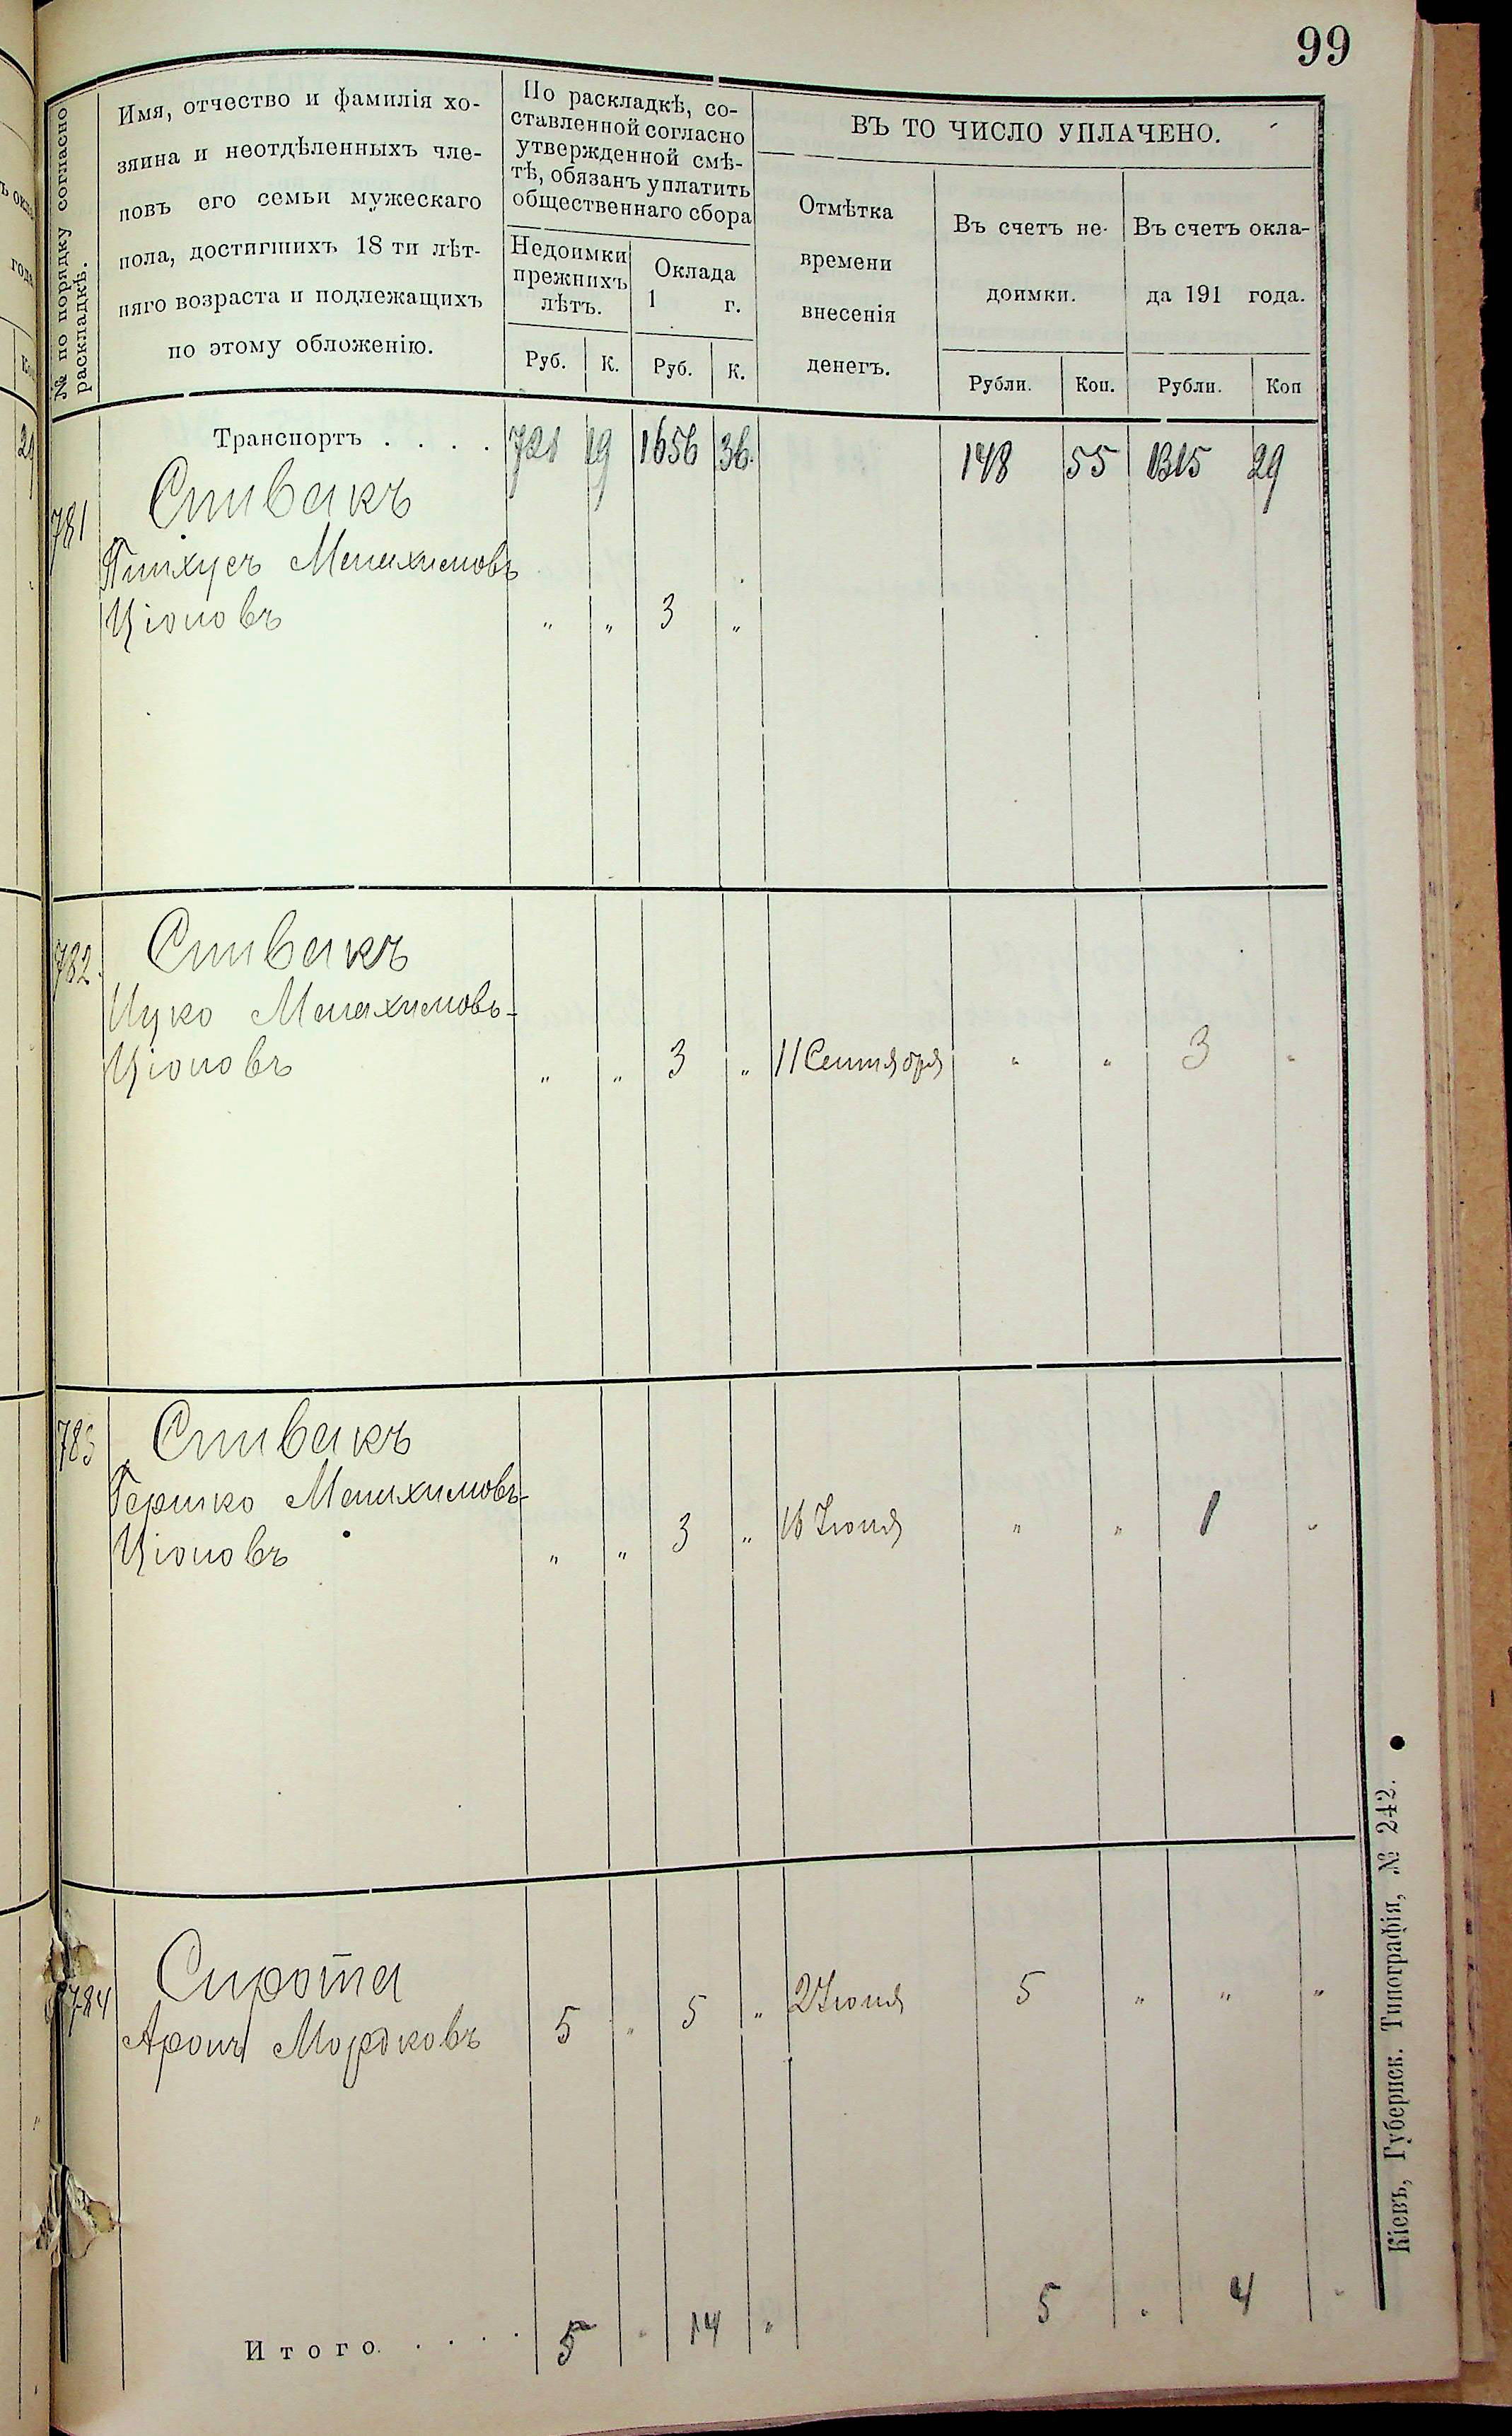 99
№ по порядку согласно
раскладкѣ.
Имя, отчество и фамилія хо-
зяина и неотдѣленныхъ чле-
новъ его семьи мужескаго
пола, достигшихъ 18 ти лѣт-
няго возраста и подлежащихъ
по этому обложенію.
По раскладкѣ, со-
ставленной согласно
утвержденной смѣ-
тѣ, обязанъ уплатить
общественнаго сбора
Недоимки
прежнихъ
лѣтъ.
Оклада
1 г.
Руб. К. Руб. К.
ВЪ ТО ЧИСЛО УПЛАЧЕНО.
Отмѣтка
времени
внесенія
денегъ.
Въ счетъ не-
доимки.
Въ счетъ окла-
да 191 года.
Рубли. Коп. Рубли. Коп
Транспортъ . . . . 19 1656 36. 148 55 1315 29
781 Спивакъ
Пинхусъ Менахимовъ
Ціоновъ „ „ 3 „
782. Спивакъ
Ицко Менахимовъ-
Ціоновъ „ „ 3 „ 11 Сентября „ „ 3 „
783 Спивакъ
Гершко Менахимовъ-
Ціоновъ „ „ 3 „ 16 Іюня „ „ 1 „
784 Сирота
Аронъ Мордковъ 5 „ 5 „ 2 Іюня 5 „ „ „
Итого. . . . . 5 „ 14 „ 5 „ 4 „
Кіевъ, Губернск. Типографія, № 242.